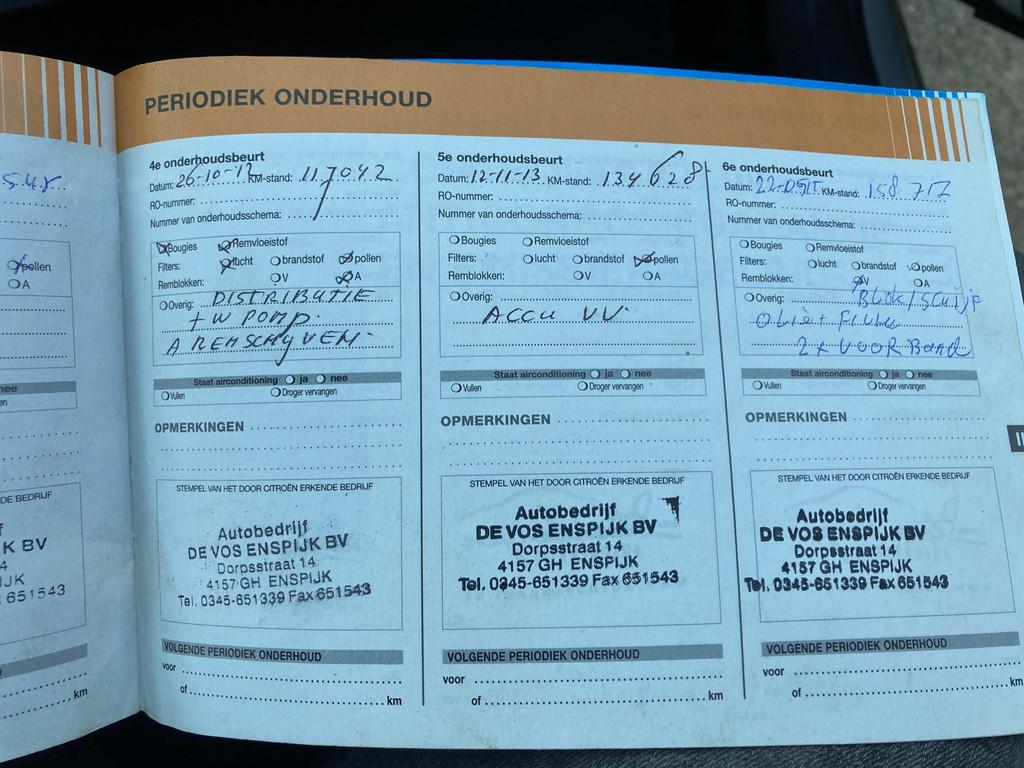 PERIODIEK ONDERHOUD
4e onderhoudsbeurt
Datum: 26-10-12 KM-stand: 117042
RO-nummer:
Nummer van onderhoudsschema:
Bougies Remvloeistof
Filters: lucht brandstof pollen
Remblokken: V A
Overig: DISTRIBUTIE
+ W POMP.
AREMSCHYVEN.
Staat airconditioning ja nee
Vullen Droger vervangen
OPMERKINGEN
STEMPEL VAN HET DOOR CITROËN ERKENDE BEDRIJF
Autobedrijf
DE VOS ENSPIJK BV
Dorpsstraat 14
4157 GH ENSPIJK
Tel. 0345-651339 Fax 651543
VOLGENDE PERIODIEK ONDERHOUD
voor
of km
5e onderhoudsbeurt
Datum: 12-11-13 KM-stand: 134628
RO-nummer:
Nummer van onderhoudsschema:
Bougies Remvloeistof
Filters: lucht brandstof pollen
Remblokken: V A
Overig:
ACCU VV.
Staat airconditioning ja nee
Vullen Droger vervangen
OPMERKINGEN
STEMPEL VAN HET DOOR CITROËN ERKENDE BEDRIJF
Autobedrijf
DE VOS ENSPIJK BV
Dorpsstraat 14
4157 GH ENSPIJK
Tel. 0345-651339 Fax 651543
VOLGENDE PERIODIEK ONDERHOUD
voor
of km
6e onderhoudsbeurt
Datum: KM-stand: 158 717
RO-nummer:
Nummer van onderhoudsschema:
Bougies Remvloeistof
Filters: lucht brandstof pollen
Remblokken: V A
Overig: Blok/Schijf
Olie + Filter
2x VOOR Band
Staat airconditioning ja nee
Vullen Droger vervangen
OPMERKINGEN
STEMPEL VAN HET DOOR CITROËN ERKENDE BEDRIJF
Autobedrijf
DE VOS ENSPIJK BV
Dorpsstraat 14
4157 GH ENSPIJK
Tel. 0345-651339 Fax 651543
VOLGENDE PERIODIEK ONDERHOUD
voor
of km
pollen
A
nee
DE BEDRIJF
K BV
651543
km